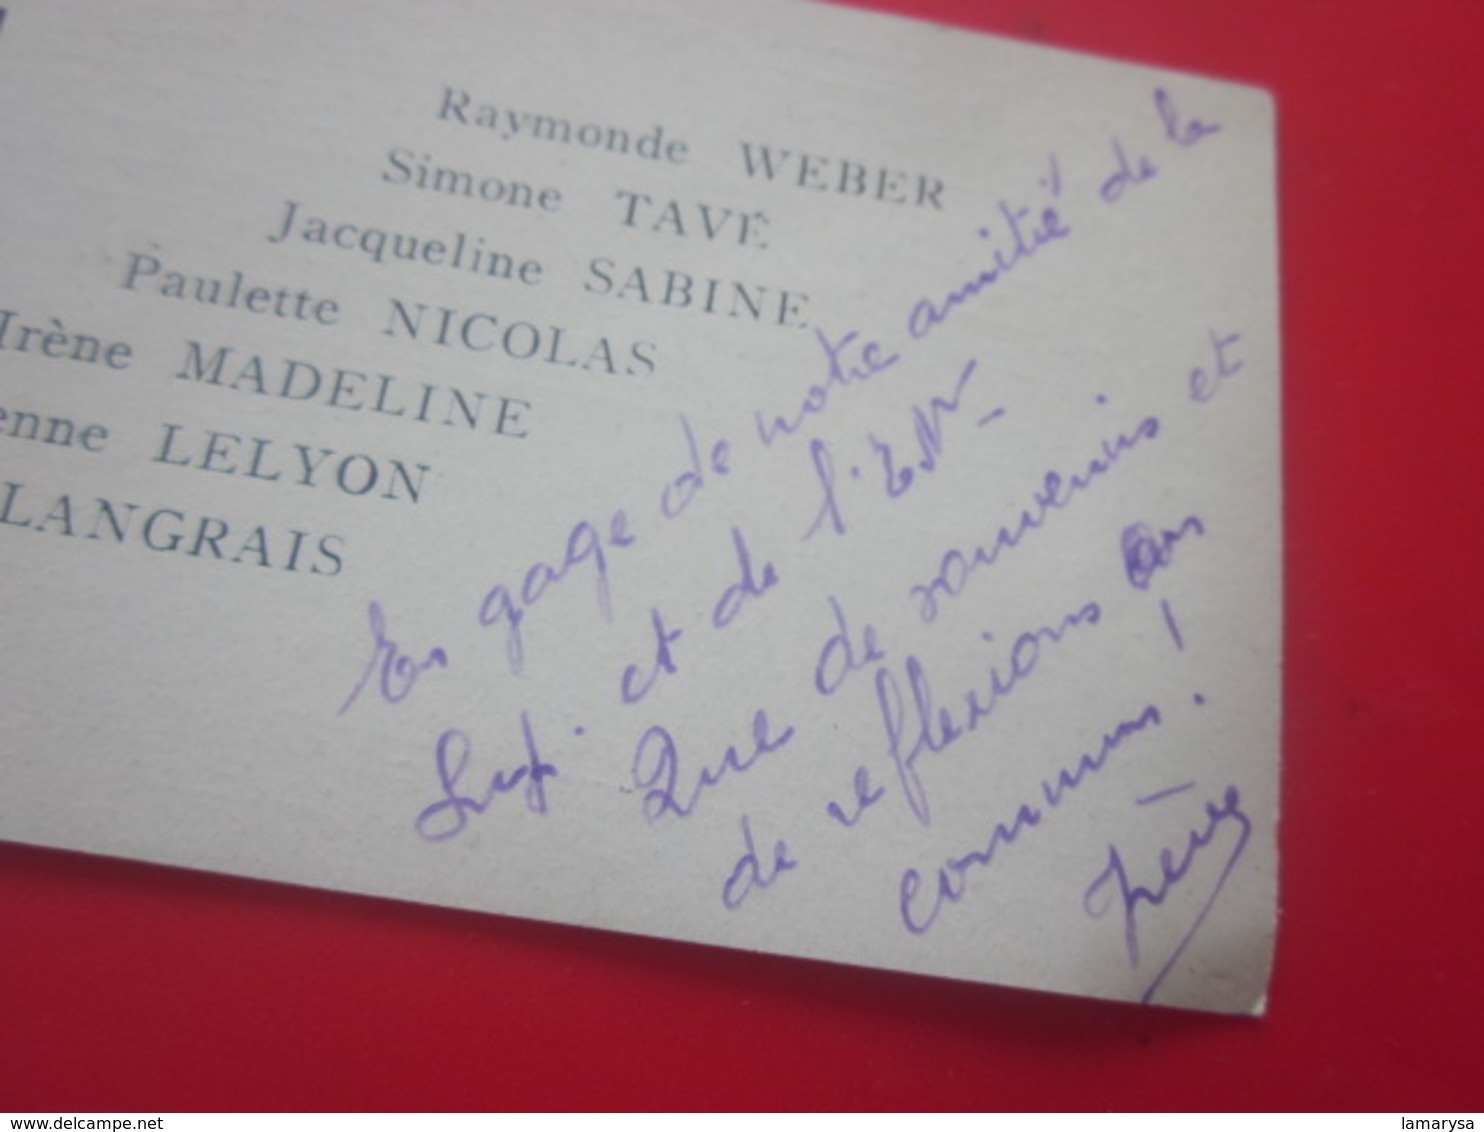 Raymonde WEBER
Simone TAVÉ
Jacqueline SABINE
Paulette NICOLAS
Irène MADELINE
enne LELYON
LANGRAIS
En gage de notre amitié de la
et de l'EN
Que de souvenirs et
de reflexions en
communs !
delcampe.net
lamarysa